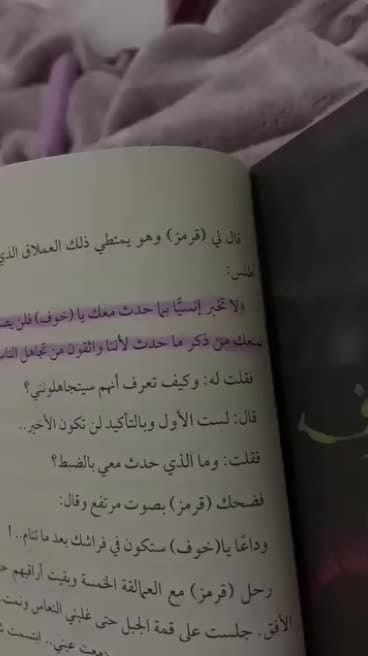 قال لي (قرمز) وهو يمتطي ذلك العملاق الذي
اطلس:
«لا تخبر إنسيًّا بما حدث معك يا (خوف) فلن
يمنعك من ذكر ما حدث لأننا واثقون من تجاهل
فقلت له: وكيف تعرف أنهم سيتجاهلونني؟
قال: لست الأول وبالتأكيد لن تكون الأخير..
فقلت: وما الذي حدث معي بالضبط؟
فضحك (قرمز) بصوت مرتفع وقال:
وداعًا يا(خوف) ستكون في فراشك بعد ما تنام..!
رحل (قرمز) مع العمالقة الخمسة وبقيت أراقبهم
الأفق. جلست على قمة الجبل حتى غلبني النعاس ونمت.
عيني.. ابتسمت